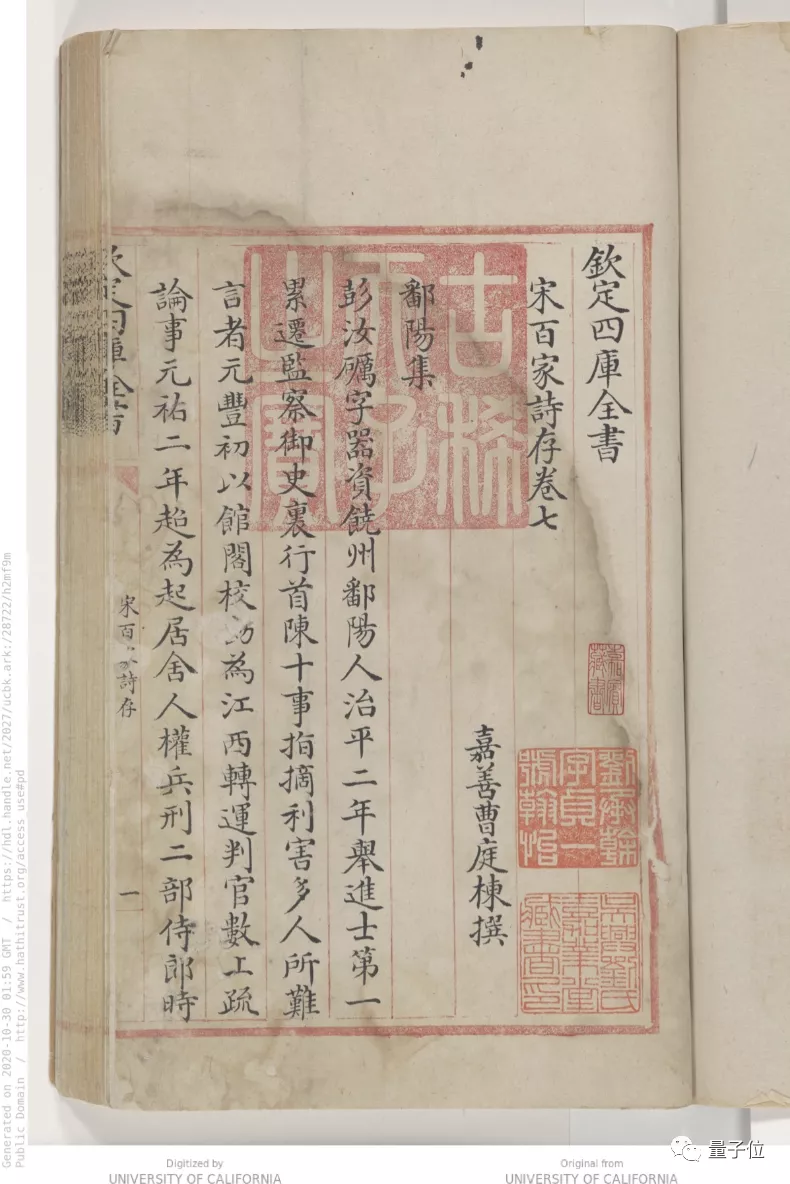 欽定四庫全書
宋百家詩存卷七
嘉善曹庭棟撰
鄱陽集
彭汝礪字器資饒州鄱陽人治平二年舉進士第一
累遷監察御史裏行首陳十事指摘利害多人所難
言者元豐初以館閣校勘為江西轉運判官數上疏
論事元祐二年起為起居舍人權兵刑二部侍郎時
欽定四庫全書
宋百家詩存
一
古稀天子之寶
劉承幹字貞一號翰怡
吳興劉氏嘉業堂藏書印
藏書
Generated on 2020-10-30 01:59 GMT / https://hdl.handle.net/2027/ucbk.ark:/28722/h2mf9m
Public Domain / http://www.hathitrust.org/access_use#pd
Digitized by
UNIVERSITY OF CALIFORNIA
Original from
UNIVERSITY OF CALIFORNIA
量子位